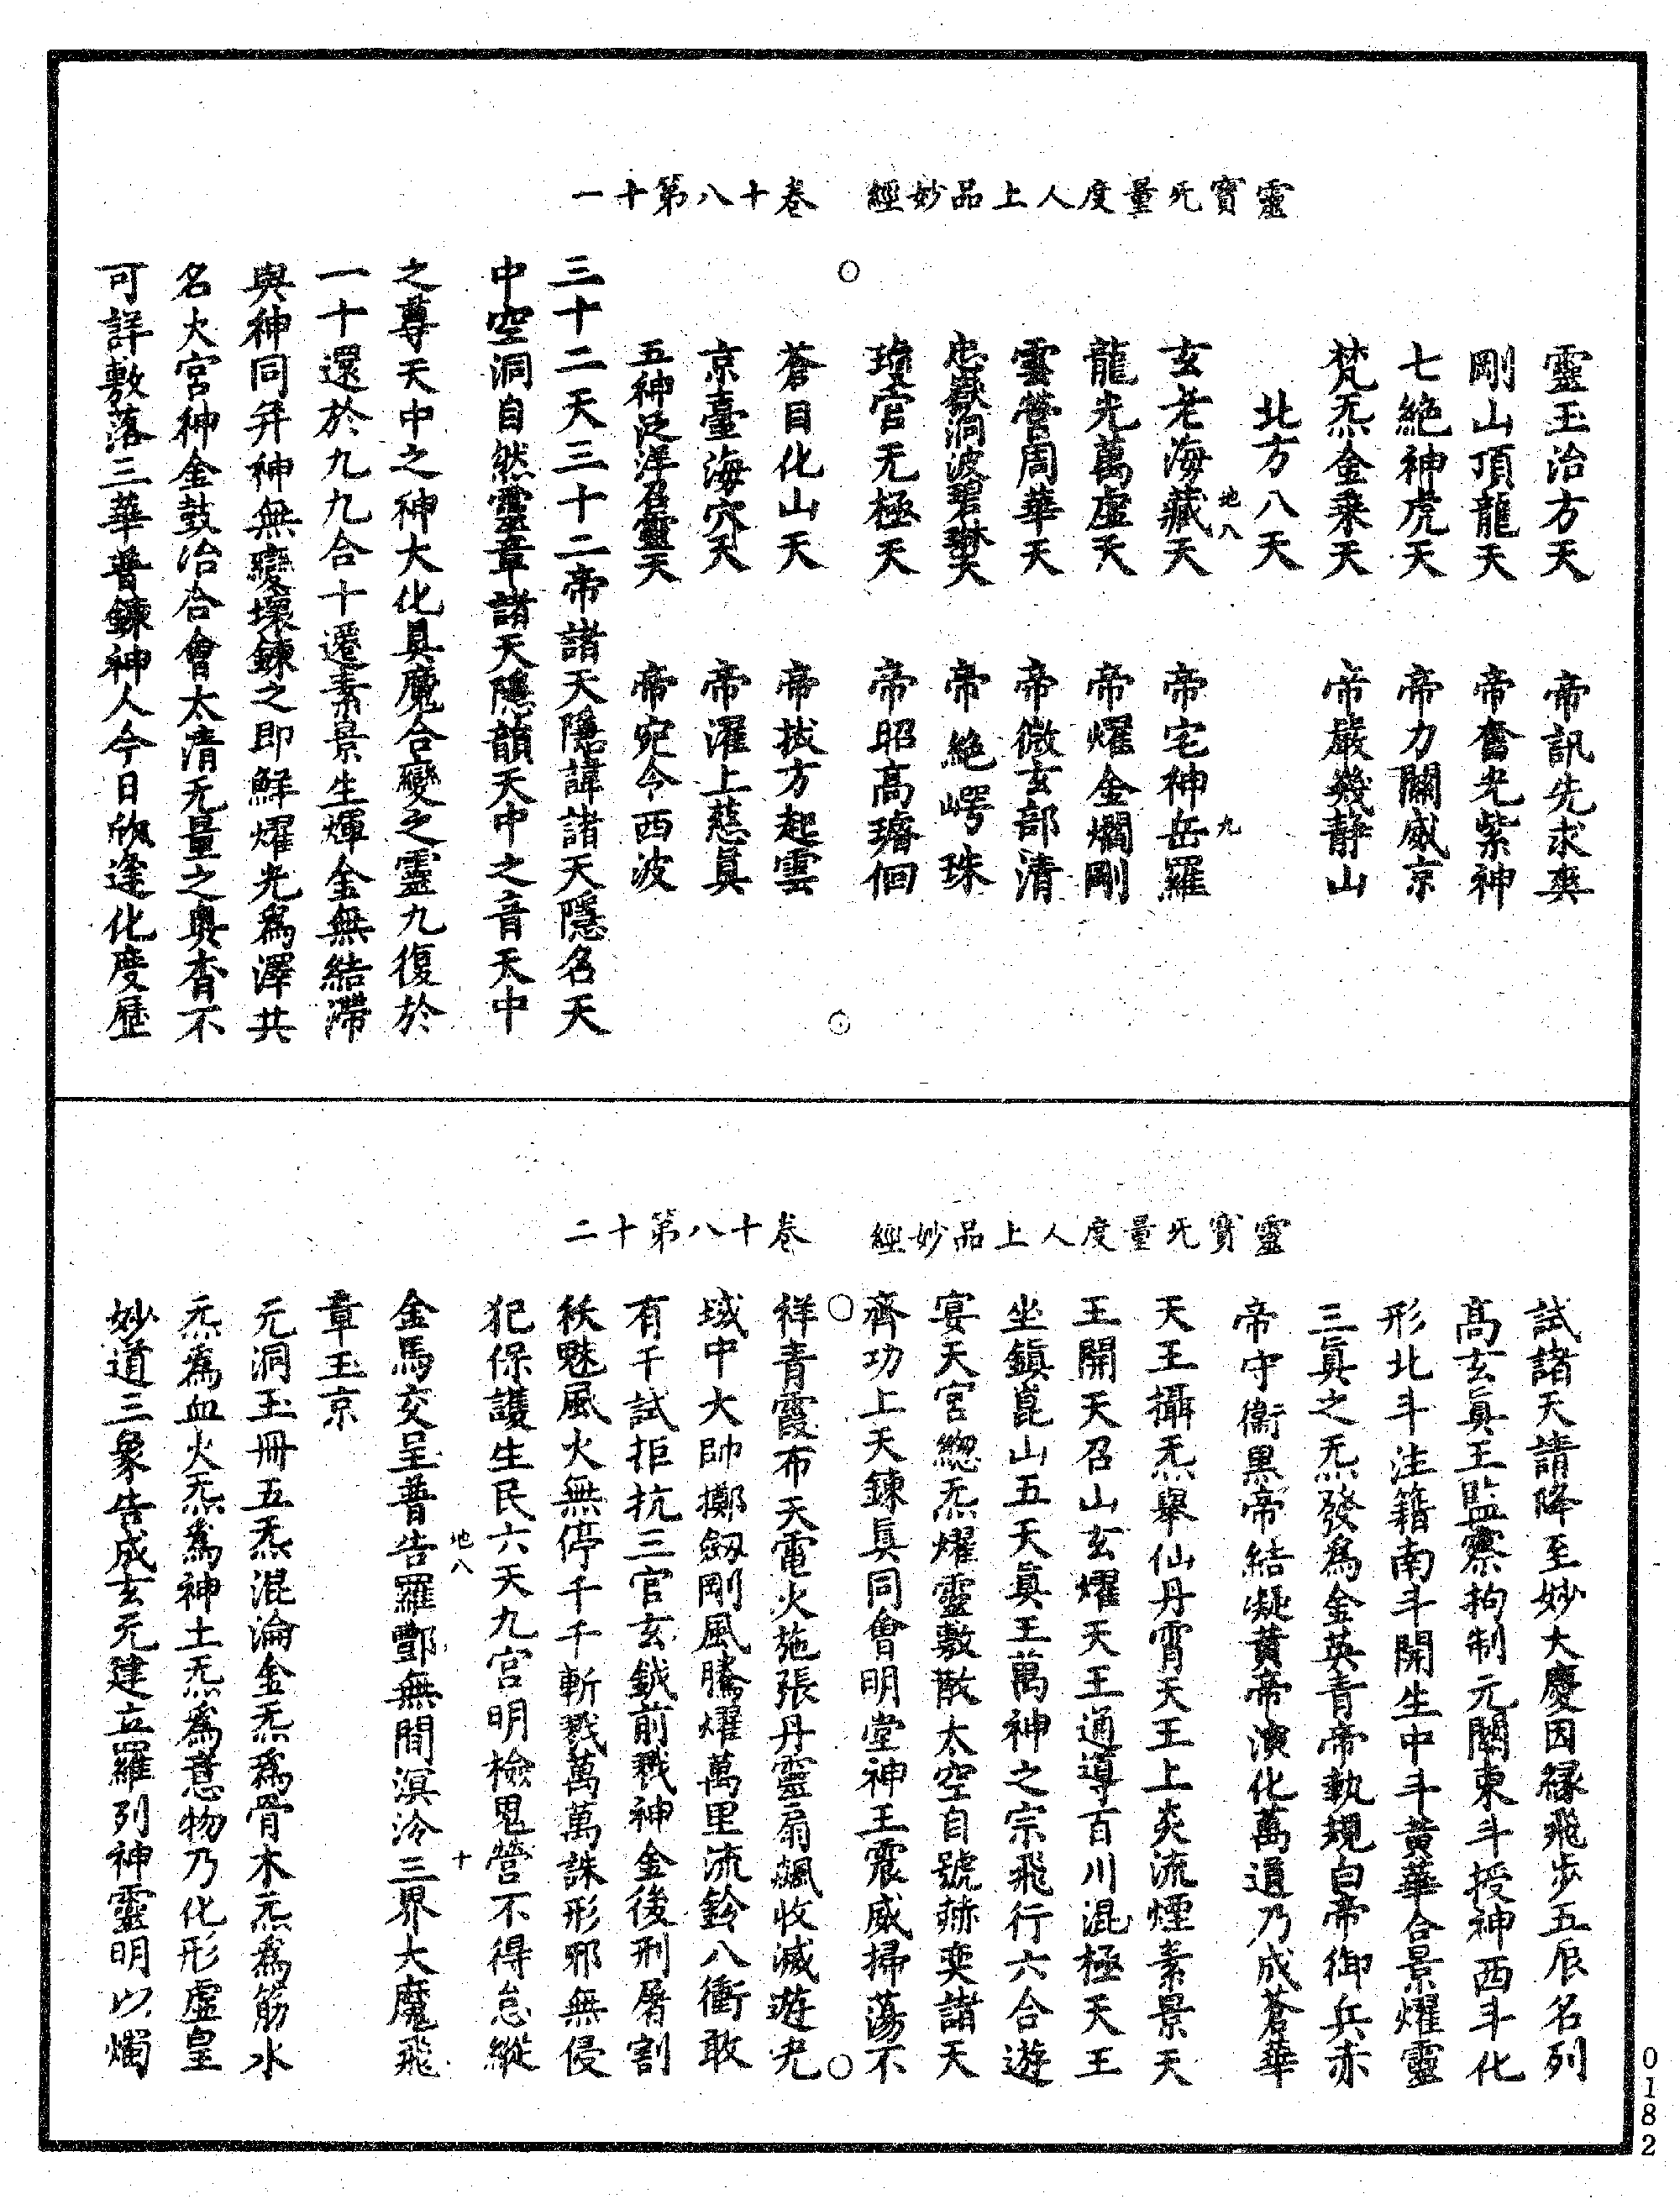 靈寶旡量度人上品妙經　卷十八第十一
靈玉治方天　帝訊先求爽
剛山頂龍天　帝奮光紫神
七絶神虎天　帝力關威京
梵炁金乗天　帝嚴幾静山
北方八天
地八　九
玄老海藏天　帝宅神岳羅
龍光萬虛天　帝燿金爛剛
雲營周華天　帝微玄部清
忠嶽洞波碧琳天　帝絶崿珠
瓊宫无極天　帝昭高瓊佪
蒼目化山天　帝拔方起雲
京臺海穴天　帝濯上慈眞
五神泛洋召靈天　帝兜令西波
三十二天三十二帝諸天隱諱諸天隱名天
中空洞自然靈章諸天隱韻天中之音天中
之尊天中之神大化具魔合變之靈九復於
一十還於九九合十遷素景生煇金無結滯
與神同并神無變壞鍊之即鮮燿光爲澤共
名大宮神金鼓治合會太清无量之奥杳不
可詳敷落三華普鍊神人今日欣逢化度歷
靈寶旡量度人上品妙經　卷十八第十二
試諸天請降至妙大慶因縁飛步五辰名列
髙玄眞王監察拘制元關東斗授神西斗化
形北斗注籍南斗開生中斗黄華合景燿靈
三眞之炁發爲金英青帝執規白帝御兵赤
帝守衞黒帝結凝黄帝演化萬通乃成蒼華
天王攝炁舉仙丹霄天王上炎流煙素景天
王開天召山玄燿天王通導百川混極天王
坐鎮崑山五天眞王萬神之宗飛行六合遊
宴天宮緫炁燿靈敷散太空自號赫奕諸天
齊功上天鍊眞同會明堂神王震威掃蕩不
祥青霞布天電火施張丹靈扇飆收滅遊光
域中大帥擲劔剛風騰燿萬里流鈴八衝敢
有干試拒抗三官玄鉞前戮神金後刑屠割
袄魅風火無停千千斬戮萬萬誅形邪無侵
犯保護生民六天九宮明檢鬼營不得怠縱
地八　十
金馬交呈普告羅酆無間溟泠三界大魔飛
章玉京
元洞玉冊五炁混淪金炁爲骨木炁爲筋水
炁爲血火炁爲神土炁爲意物乃化形虛皇
妙道三象告成玄元建立羅列神靈明以燭
0182